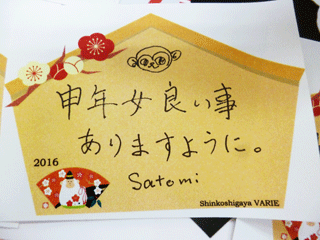 申年女良い事
ありますように。
2016
Satomi
Shinkoshigaya VARIE